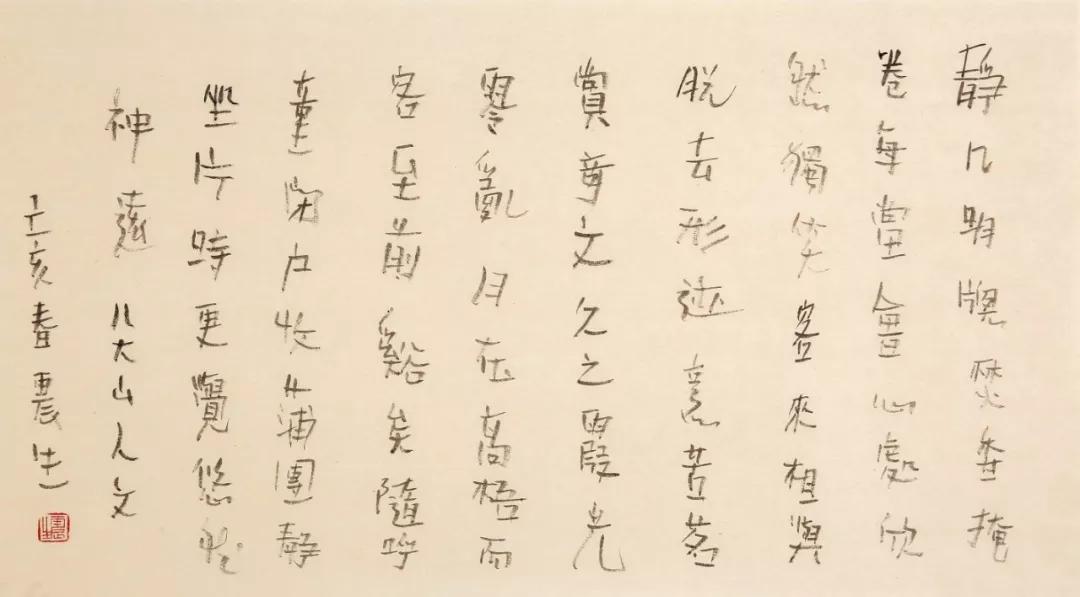 靜几明牕焚香掩
卷每當會心處欣
然獨笑客來相與
脫去形迹烹苦茗
賞章文久之霞光
零亂月在高梧而
客至前谿矣隨呼
童閉户收蒲團靜
坐片時更覺悠然
神遠 八大山人文
亥春生